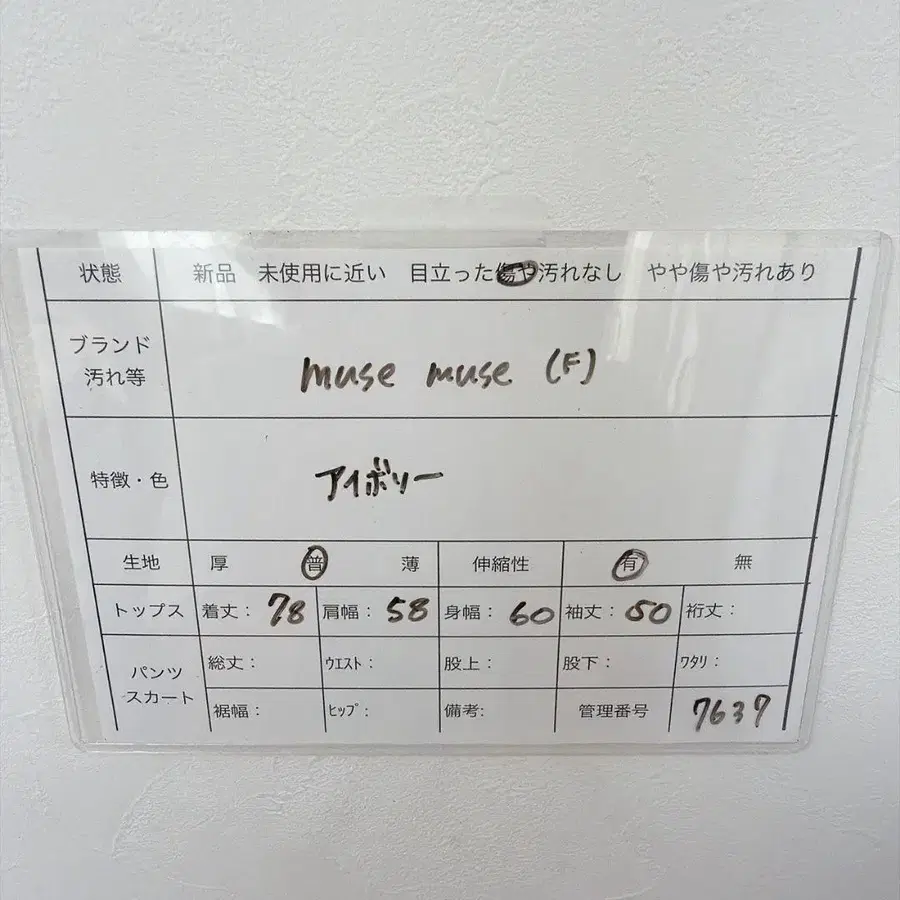 状態 新品 未使用に近い 目立った傷や汚れなし やや傷や汚れあり
ブランド
汚れ等
muse muse (F)
特徴・色 アイボリー
生地 厚 普 薄 伸縮性 有 無
トップス 着丈: 78 肩幅: 58 身幅: 60 袖丈: 50 裄丈:
パンツ
スカート
総丈: ウエスト: 股上: 股下: ワタリ:
裾幅: ヒップ: 備考: 管理番号 7637